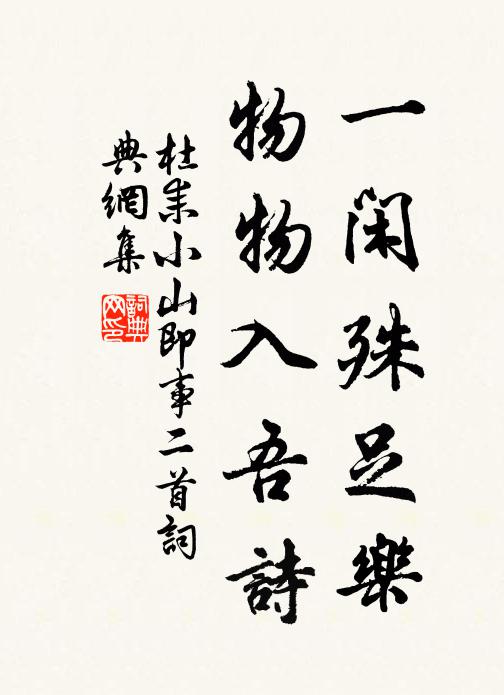 一閑殊足樂
物物入吾詩
杜耒小山即事二首詞
典網集
詞典网印